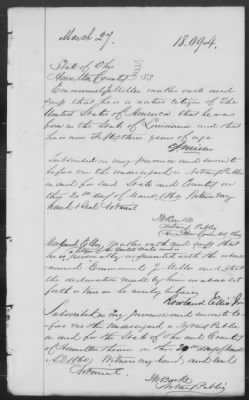 March 27. 18.694.
State of Ohio
Hamilton County } SS
Emmanuel J Miller makes oath and
says that he is a native citizen of the
United States of America that he was
born in the State of Louisiana and that
he is now fifty three years of age
EJ Miller
Subscribed in my presence and sworn to
before me the undersigned a Notary Public
in and for said State and County on
this 20th day of March 1860, Witness my
hand & Seal Notarial
Notary Public
Rowland Ellis Jr makes oath and says that
a citizen of the United States and
he is personally acquainted with the above
named Emmanuel J Miller and that
the declaration made by him as above set
forth is true as he verily believes
Rowland Ellis Jr
Subscribed in my presence and sworn to be
fore me the undersigned a Notary Public
in and for the State of Ohio and County
of Hamilton this 20th day of March
AD 1860, Witness my hand, and seal
Notarial.
Notary Public